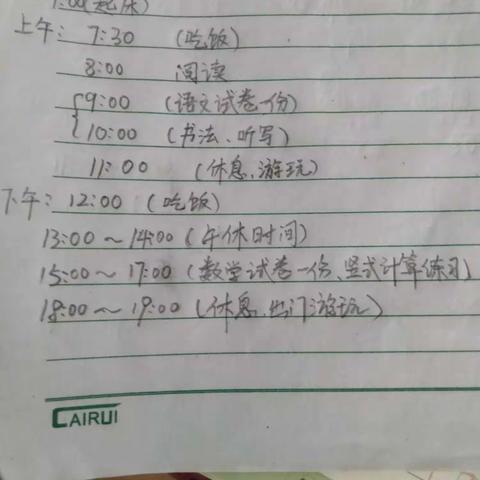 7:00(起床)
上午: 7:30 (吃饭)
8:00 阅读
9:00 (语文试卷一份)
10:00 (书法、听写)
11:00 (休息、游玩)
下午: 12:00 (吃饭)
13:00~14:00 (午休时间)
15:00~17:00 (数学试卷一份、竖式计算练习)
18:00~19:00 (休息、出门游玩)
CAIRUI